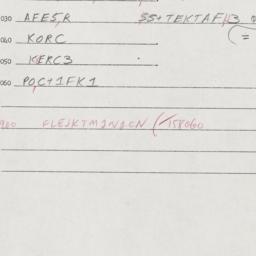 030 AFES,R SS+TEKTAF,H3
(=
060 KORC
050 KERC3
060 PO,C+1FK1
900 FLEJKTM2N2CN (158060